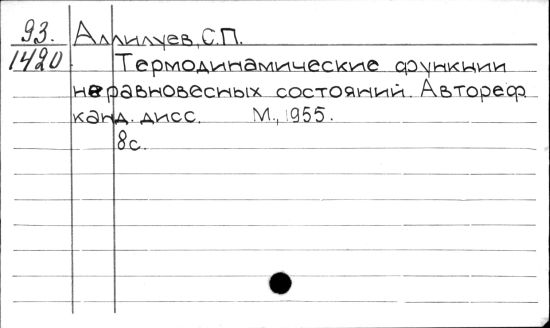 93.
1420
Аллилуев, С.П.
Термодинамические функции
неравновесных состояний. Автореф.
канд. дисс. М., 1955.
8с.